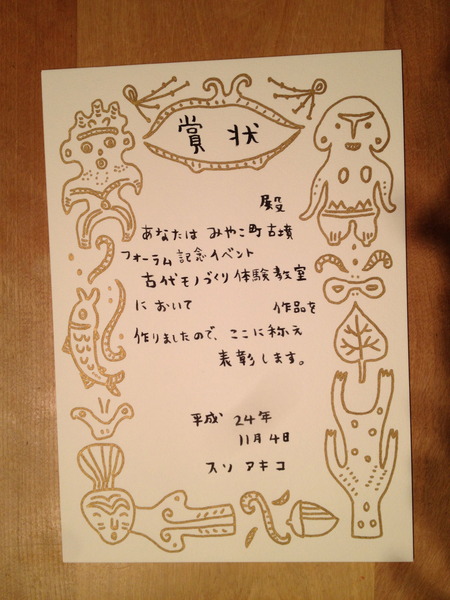 賞状
殿
あなたは みやこ町古墳
フォーラム 記念イベント
古代モノづくり体験教室
において 作品を
作りましたので、ここに称え
表彰します。
平成 24年
11月4日
スソ アキコ